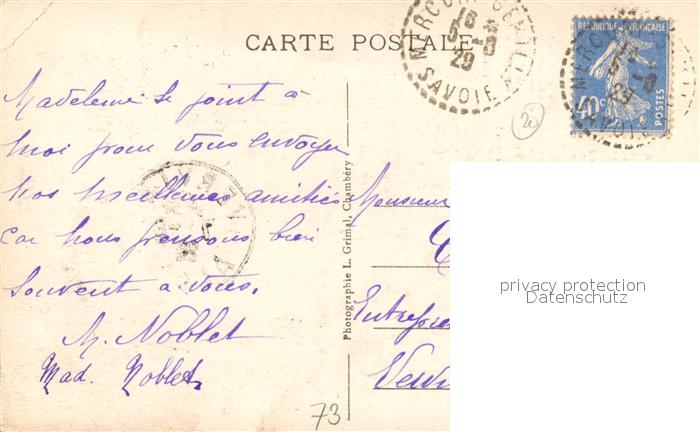 CARTE POSTALE
MERCURY-GEMILLY
SAVOIE
5 -8
29
REPUBLIQUE FRANÇAISE
40c
POSTES
20
Madeleine se joint à
moi pour vous envoyer
nos meilleures amitiés
car nous pensons bien
souvent à vous.
M. Noblet
Mad. Noblet
Photographie L. Grimal, Chambéry
Monsieur
Entrepre
73
privacy protection
Datenschutz